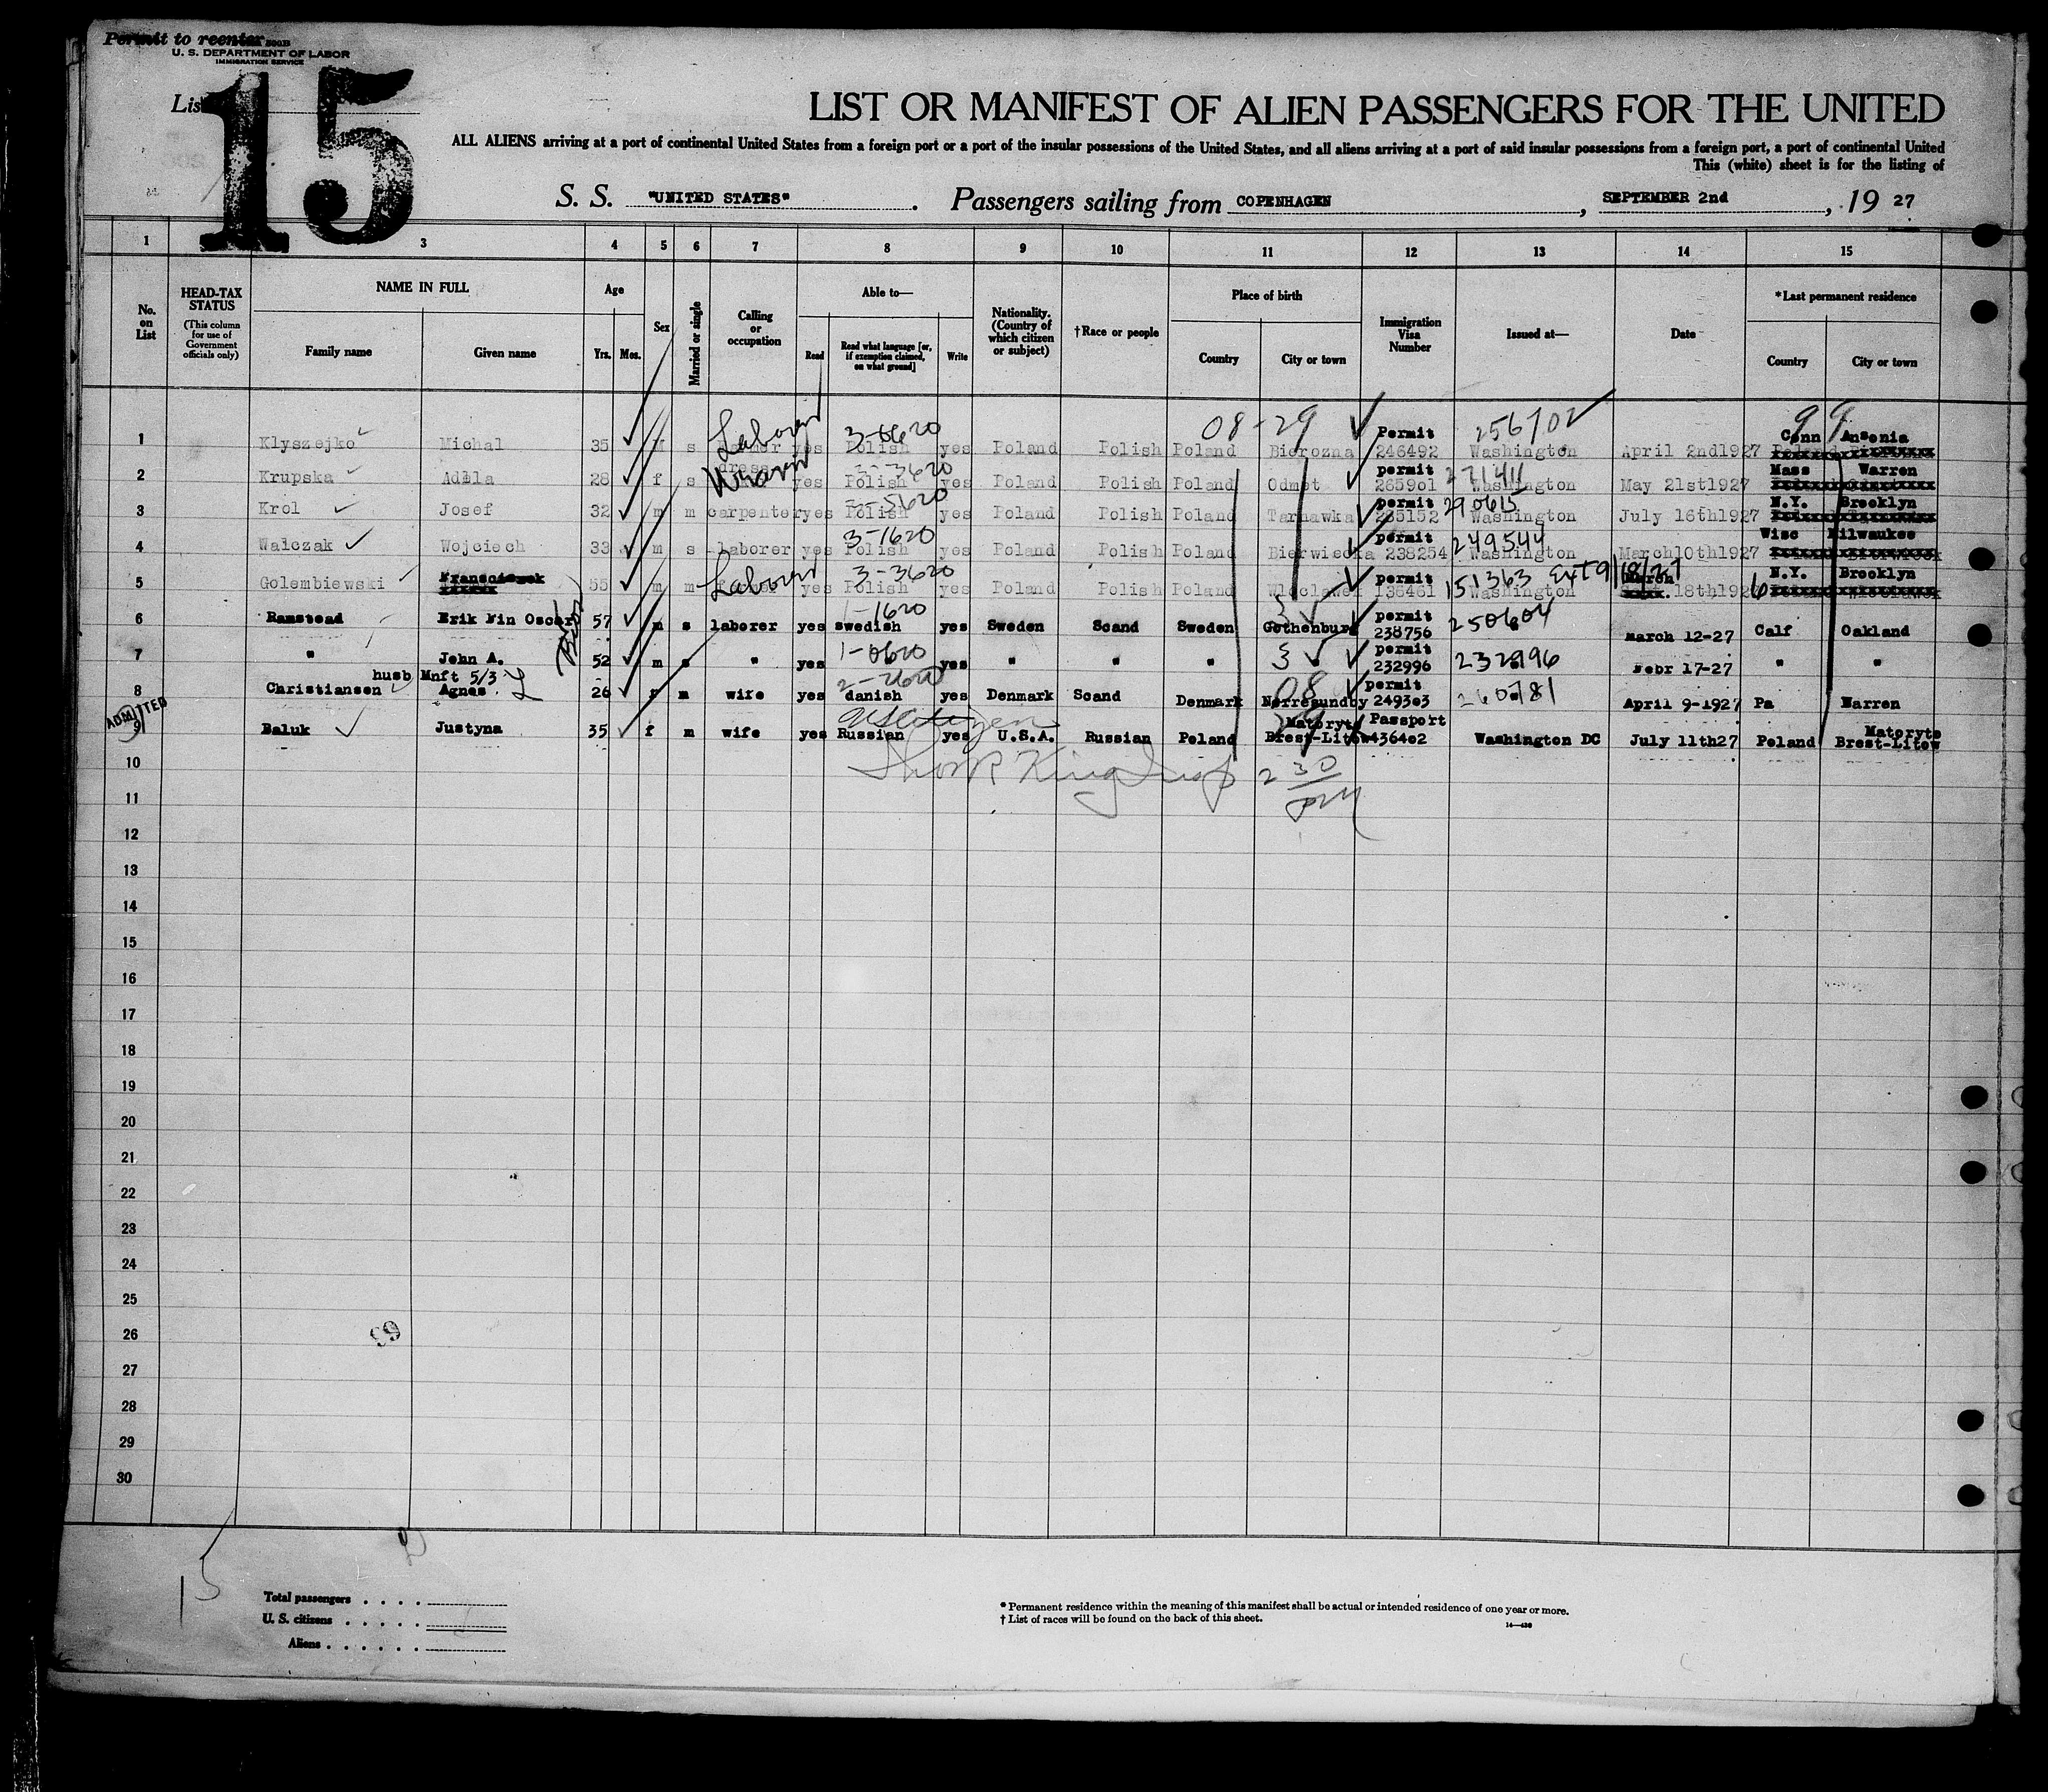 Permit to reenter
U. S. DEPARTMENT OF LABOR
IMMIGRATION SERVICE
List 15
LIST OR MANIFEST OF ALIEN PASSENGERS FOR THE UNITED
ALL ALIENS arriving at a port of continental United States from a foreign port or a port of the insular possessions of the United States, and all aliens arriving at a port of said insular possessions from a foreign port, a port of continental United
This (white) sheet is for the listing of
S. S. "UNITED STATES". Passengers sailing from COPENHAGEN, SEPTEMBER 2nd, 19 27
1 3 4 5 6 7 8 9 10 11 12 13 14 15
No. on List
HEAD-TAX STATUS (This column for use of Government officials only)
NAME IN FULL Family name Given name
Age Yrs. Mos.
Sex
Married or single
Calling or occupation
Able to— Read Read what language [or, if exemption claimed, on what ground] Write
Nationality. (Country of which citizen or subject)
†Race or people
Place of birth Country City or town
Immigration Visa Number
Issued at—
Date
*Last permanent residence Country City or town
08-29 256702 99
Laborer 3-6620 Permit Conn Ansonia
1 Klyszejko Michal 35 M s yes Polish yes Poland Polish Poland Bierozna 246492 Washington April 2nd1927
dress 3-3620 permit 271411 Mass Warren
2 Krupska Adela 28 f s yes Polish yes Poland Polish Poland Odmet 265901 Washington May 21st1927
3-5620 permit 290615 N.Y. Brooklyn
3 Krol Josef 32 m m carpenter yes Polish yes Poland Polish Poland Tarnawka 285152 Washington July 16th1927
3-1620 permit 249544 Wisc Milwaukee
4 Walczak Wojciech 33 m s laborer yes Polish yes Poland Polish Poland Bierwiecka 238254 Washington March10th1927
Laborer 3-3620 permit 151363 Ext 9/18/27 March N.Y. Brooklyn
5 Golembiewski Franciszek 55 m m yes Polish yes Poland Polish Poland Wloclawek 138461 Washington 18th1926
1-1620 permit 250604
6 Ramstead Erik Fin Oscar 57 m s laborer yes swedish yes Sweden Scand Sweden Gothenburg 238756 March 12-27 Calf Oakland
Bros
1-0620 permit 232996
7 " John A. 52 m s " yes yes " " " 232996 Febr 17-27 " "
husb Mnft 5/3 2-2620 08 permit 260781
8 Christiansen Agnes 26 f m wife yes danish yes Denmark Scand Denmark Nørresundby 249303 April 9-1927 Pa Warren
ADMITTED US Citizen Matoryto Passport Matoryto
9 Baluk Justyna 35 f m wife yes Russian yes U.S.A. Russian Poland Brest-Litew 436402 Washington DC July 11th27 Poland Brest-Litew
2 30 PM
10
11
12
13
14
15
16
17
18
19
20
21
22
23
24
25
26
27
28
29
30
15
Total passengers
U. S. citizens
Aliens
* Permanent residence within the meaning of this manifest shall be actual or intended residence of one year or more.
† List of races will be found on the back of this sheet.
14—430